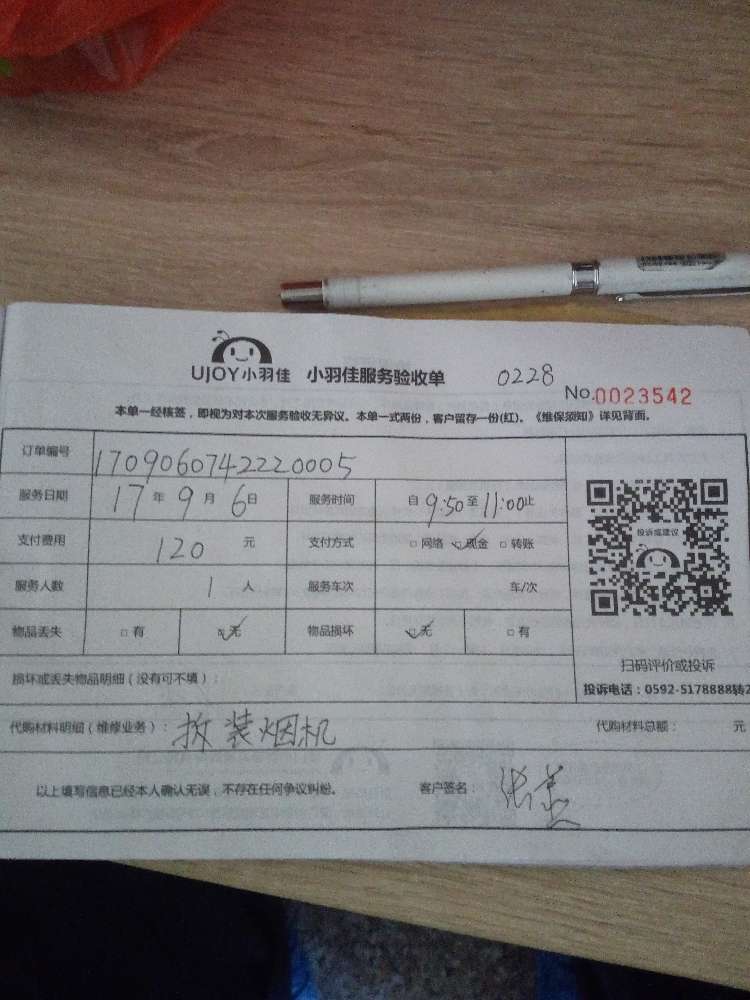 UJOY小羽佳 小羽佳服务验收单 0228
No.0023542
本单一经核签，即视为对本次服务验收无异议。本单一式两份，客户留存一份(红)。《维保须知》详见背面。
订单编号 1709060742220005
服务日期 17年9月6日 服务时间 自9:50至11:00止
支付费用 120元 支付方式 □网络 ☑现金 □转账
投诉或建议
服务人数 1人 服务车次 车/次
物品丢失 □有 ☑无 物品损坏 ☑无 □有
扫码评价或投诉
损坏或丢失物品明细（没有可不填）：
投诉电话：0592-5178888转2
代购材料明细（维修业务）：拆装烟机 代购材料总额： 元
以上填写信息已经本人确认无误，不存在任何争议纠纷。 客户签名：张